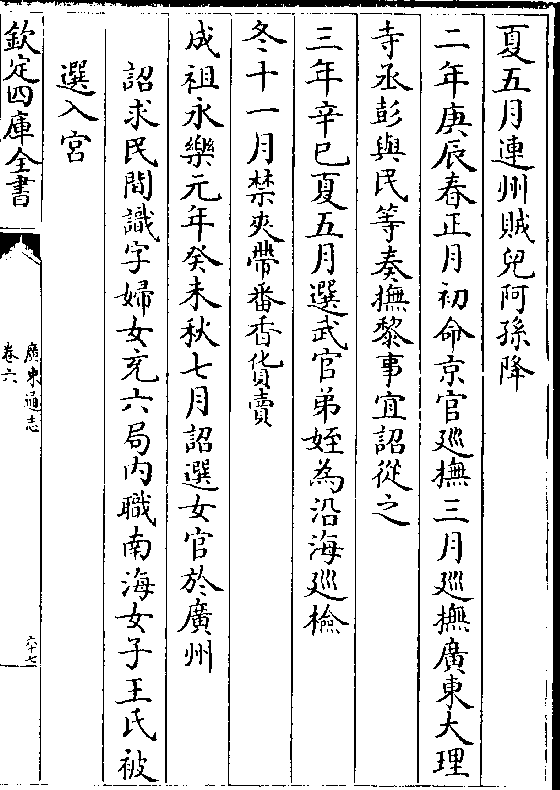 夏五月連州賊兒阿孫降
二年庚辰春正月初命京官廵撫三月廵撫廣東大理
寺丞彭與民等奏撫黎事宜詔從之
三年辛巳夏五月選武官弟姪為沿海廵檢
冬十一月禁夾帶番香貨賣
成祖永樂元年癸未秋七月詔選女官於廣州
詔求民間識字婦女充六局内職南海女子王氏被
選入宮
欽定四庫全書
廣東通志
卷六
六十七